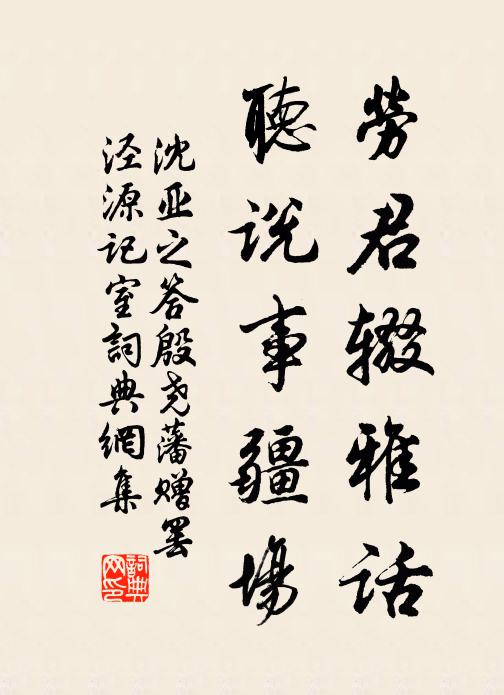 劳君辍雅话
聽说事疆場
沈亚之答殷尧藩赠罢
泾源记室詞典網集
詞典网印